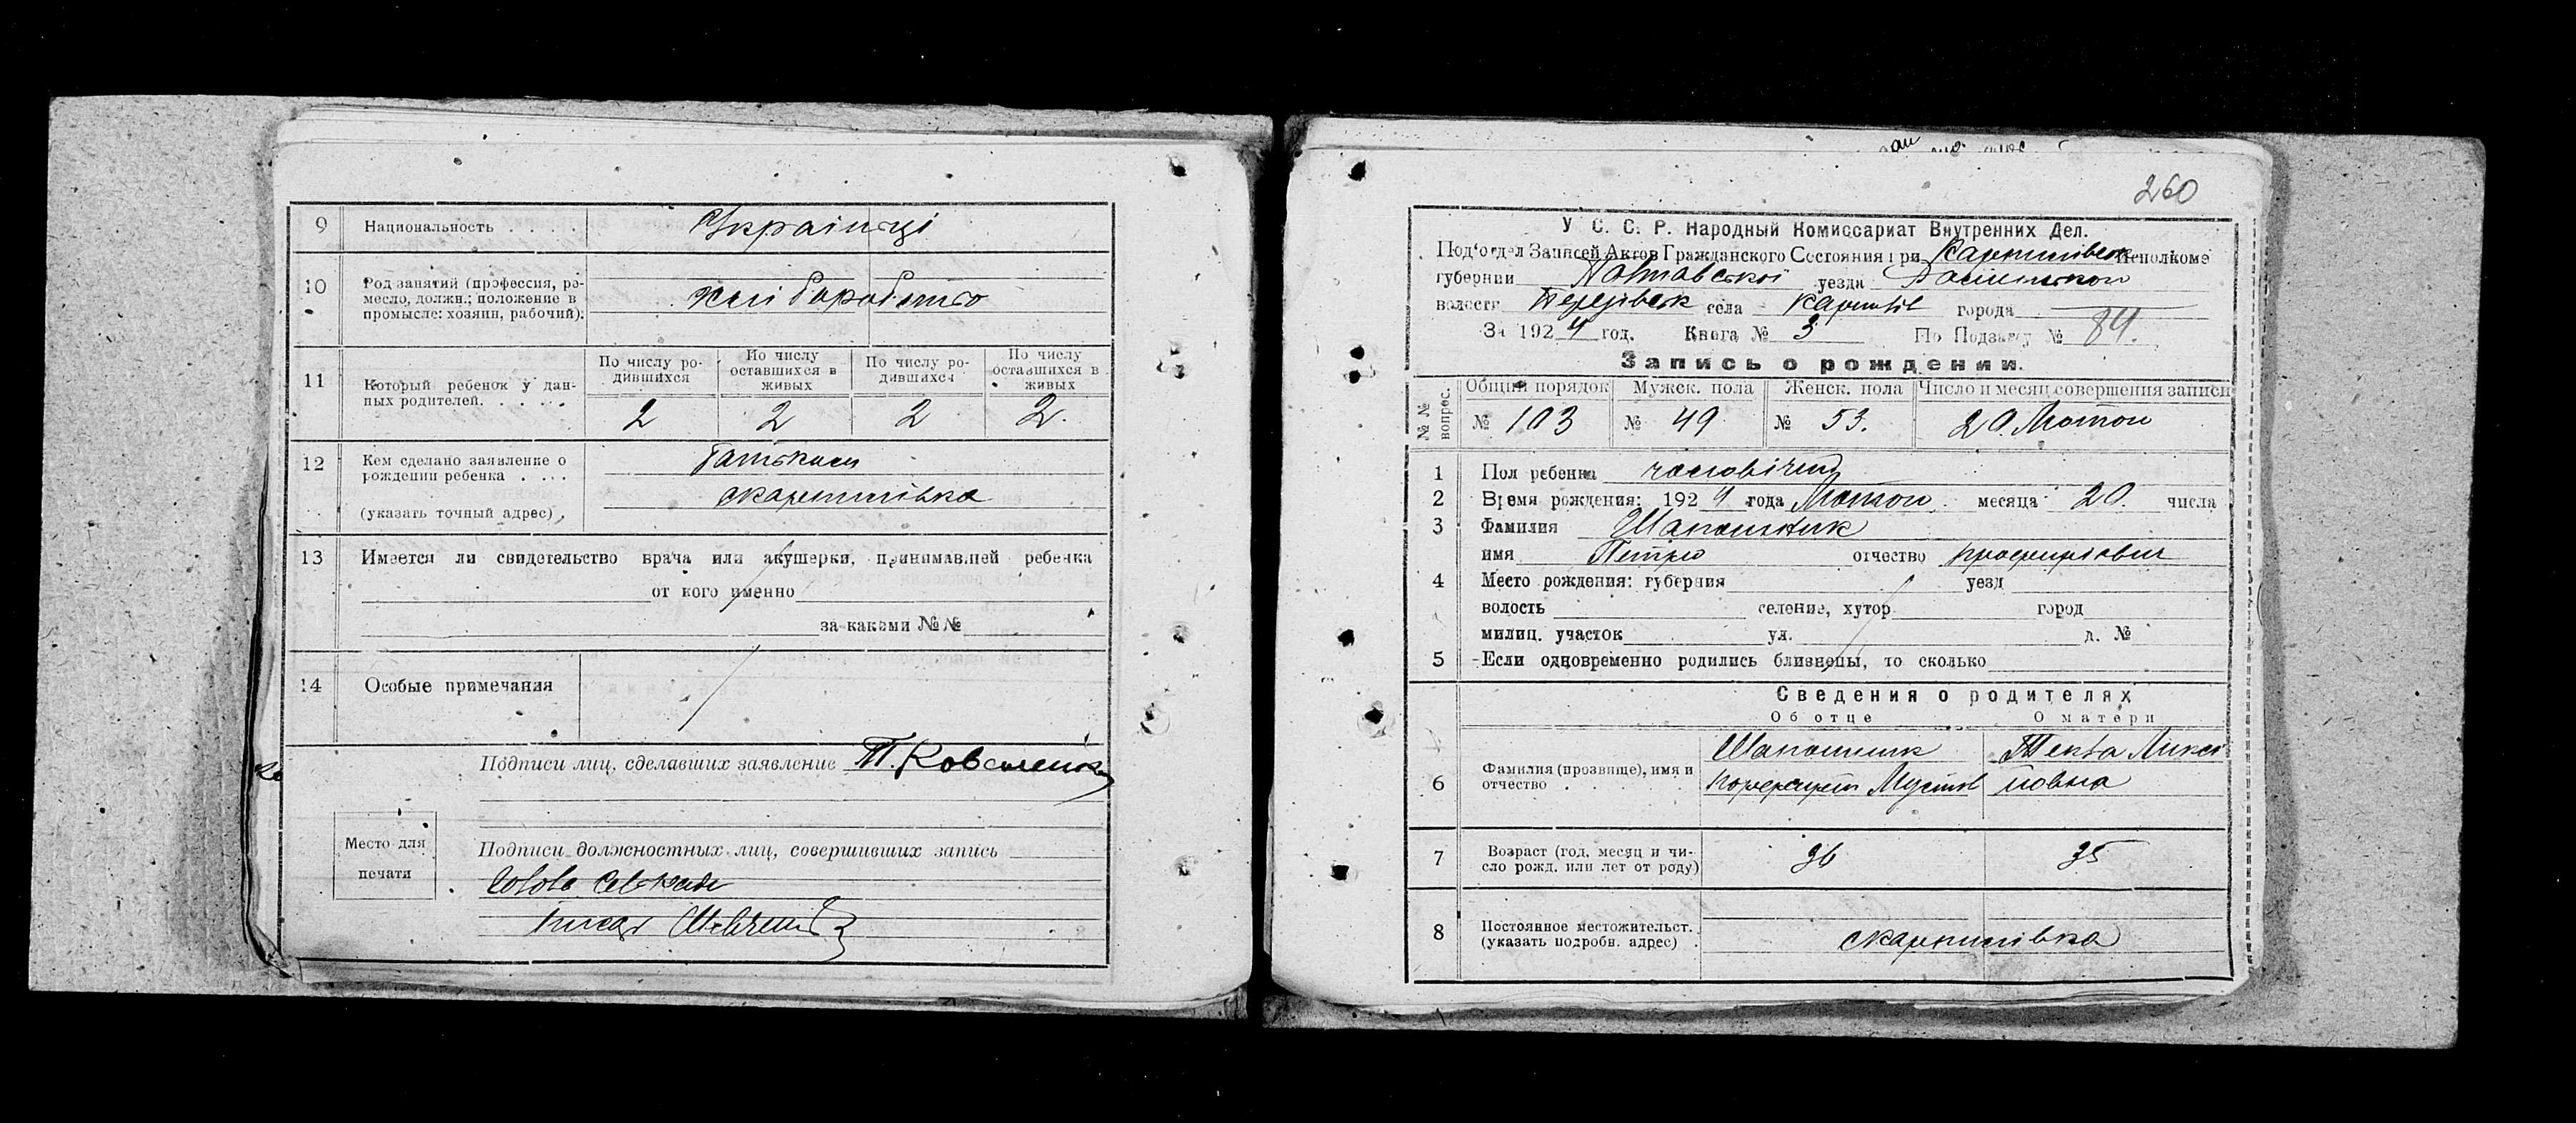 9 Национальность . . . . Українці
10 Род занятий (профессия, ремесло, должн.; положение в промысле: хозяин, рабочий). хліборобство
11 Который ребенок у данных родителей. . . . .
По числу родившихся 2
По числу оставшихся в живых 2
По числу родившихся 2
По числу оставшихся в живых 2.
12 Кем сделано заявление о рождении ребенка . . . . Батьком
(указать точный адрес)
13 Имеется ли свидетельство врача или акушерки, принимавшей ребенка
от кого именно
за какими №№
14 Особые примечания
Подписи лиц, сделавших заявление Т. Коваленко
Место для печати
Подписи должностных лиц, совершивших запись
Голова
Писар
260
У. С. С. Р. Народный Комиссариат Внутренних Дел.
Под'отдел Записей Актов Гражданского Состояния при Исполкоме
губернии Полтавської уезда
волости села города
За 1924 год. Книга № 3 По Подзагу № 84.
Запись о рождении.
№№ вопрос.
Общий порядок Мужск. пола Женск. пола Число и месяц совершения записи
№ 103 № 49 № 53. 20. Лютого
1 Пол ребенка чоловічий
2 Время рождения: 1924 года Лютого месяца 20. числа
3 Фамилия Шапошник
имя Петро отчество
4 Место рождения: губерния уезд
волость селение, хутор город
милиц. участок ул. д. №
5 Если одновременно родились близнецы, то сколько
Сведения о родителях
Об отце О матери
6 Фамилия (прозвище), имя и отчество . Шапошник
7 Возраст (год, месяц и число рожд. или лет от роду) 36 35
8 Постоянное местожительст. (указать подробн. адрес) .